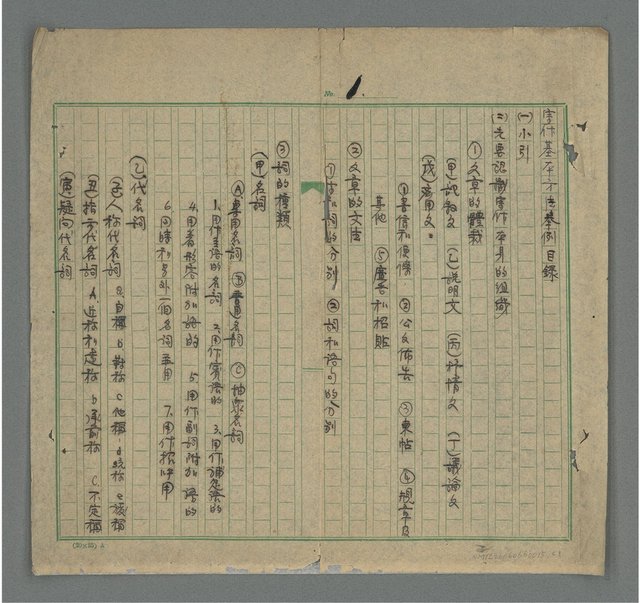 No. 1
寫作基本方法舉例 目錄
(一) 小引
(二) 先要認識寫作本身的組織
① 文章的體裁
(甲) 記敘文 (乙) 說明文 (丙) 抒情文 (丁) 議論文
(戊) 應用文:
① 書信和便條 ② 公文佈告 ③ 柬帖 ④ 規章及
其他 ⑤ 廣告和招貼
② 文章的文法
① 字和詞的分別 ② 詞和語句的分別
③ 詞的種類
(甲) 名詞
Ⓐ 專用名詞 Ⓑ 普通名詞 Ⓒ 抽象名詞
1. 用作主語的名詞 2. 用作賓語的 3. 用作補足語的
4. 用着形容附加語的 5. 用作副詞附加語的
6. 同時和另外一個名詞並用 7. 用作招呼用
(乙) 代名詞
(子) 人称代名詞 a. 自稱 b. 對称 c. 他稱 d. 統称 e. 複稱
(丑) 指示代名詞 a. 近称和遠称 b. 承前称 c. 不定稱
(寅) 疑问代名詞
(20×25) A